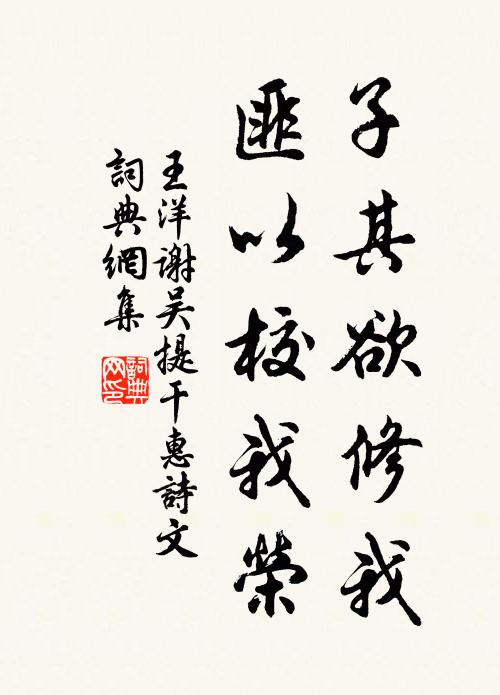 子其欲修我
匪以校我榮
王洋謝吳提干惠詩文
詞典網集
詞典網印